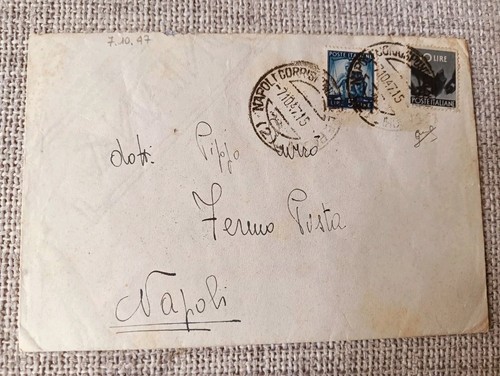 7.10.47
POSTE ITALIANE
LIRE
POSTE ITALIANE
NAPOLI CORRISP
7.10.47.15
(2)
10.47.15
dott. Pippo
Fermo Posta
Napoli